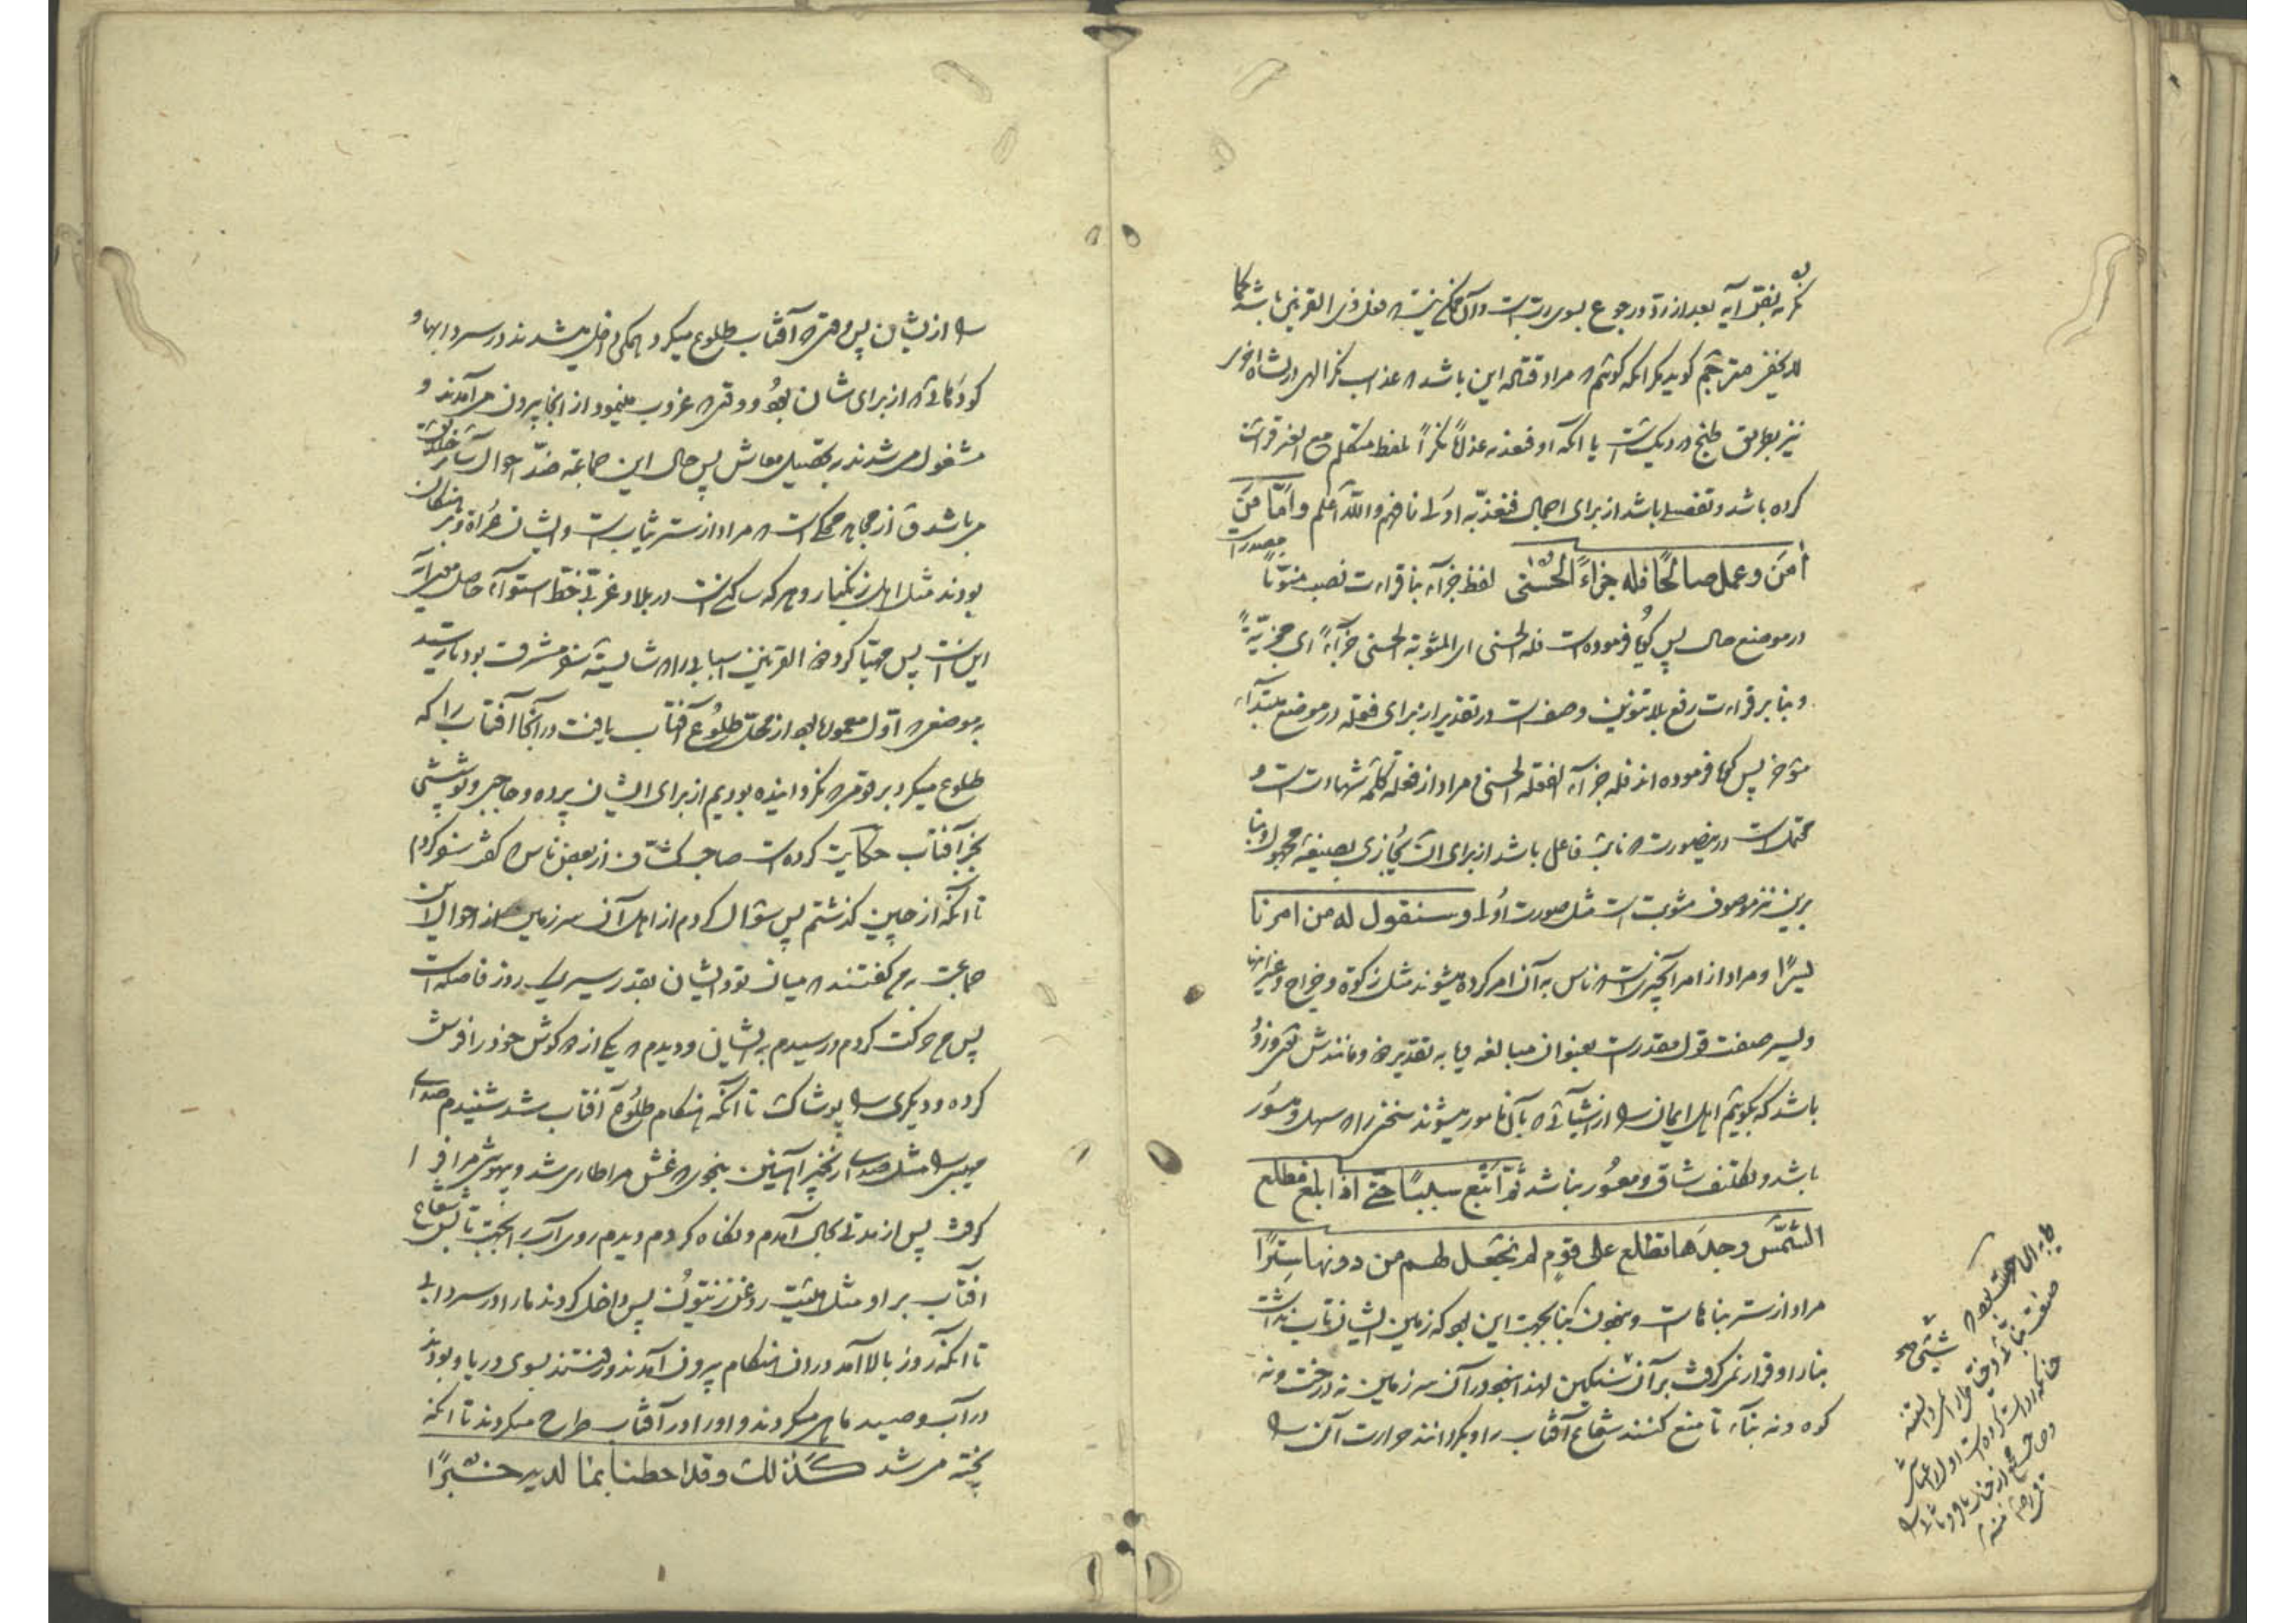 نکر به نص آیه بعد از رد و رجوع بسوی ربست و آن ممکن نیست که فعل ذی القرنین باشد کما
لا یخفی مترجم گوید مگر آنکه گوئیم که مراد قتاله این باشد که عذاب نکر الهی در نشاه اخری
نیز بطریق طبخ در دیگست یا آنکه او فنعذبه عذابا نکرا بلفظ متکلم مع الغیر قرائت
کرده باشد و تفصیل باشد از برای اجمال فنعذبه اولی فافهم والله اعلم واما من
آمن وعمل صالحا فله جزاء الحسنی لفظ جزاء بنا قراءت نصب منونا مصدر است
در موضع حال پس گویا فرموده است فله الحسنی ای المثوبة الحسنی جزاء ای مجزیة
و بنا بر قراءت رفع بلا تنوین وصف است در تقدیر از برای فعله در موضع مبتداء
مؤخر پس گویا فرموده اند فله جزاء الفعلة الحسنی و مراد از فعله کلمه شهادت است و
محتملست درینصورت که نایب فاعل باشد از برای یجازی بصیغه مجهول و بنا
برین نیز موصوف مثوبت است مثل صورت اولی وسنقول له من امرنا
یسرا و مراد از امر آنچیزیست که ناس به آن امر کرده میشوند مثل زکوة و خراج و غیر اینها
و یسر صفت قول مقدرست بعنوان مبالغه یا به تقدیر ذو و مانندش
باشد که بگوئیم اهل ایمان را از اشیائی که بآن مامور میشوند سخنی را که سهل و میسور
باشد و تکلیف شاق و معسور نباشد ثم اتبع سببا حتی اذا بلغ مطلع
الشمس وجدها تطلع علی قوم لم نجعل لهم من دونها سترا
مراد از ستر بناهاست و نبودن بنا بجهت این بود که زمین ایشان تاب نداشت
بنا را و قرار نمی گرفت بر آن سنگین لهذا نبود در آن سر زمین نه درخت و نه
کوه و نه بناء تا منع کنند شعاع آفتاب را و بگردانند حرارت آن را
از ایشان پس وقتی که آفتاب طلوع میکرد همگی داخل میشدند در سردابها و
گودالهائی که از برای شان بود و وقتی که غروب مینمود از آنجا بیرون می آمدند و
مشغول می شدند به تحصیل معاش پس حال این جماعة ضد احوال سائر خلایق
می باشد و از مجاهد محکیست که مراد از ستر ثیاب است و ایشان عراة و برهنگان
بودند مثل اهل زنگبار و هر که ساکنست در بلاد غربی خط استواء حاصل معنی آیه
اینست پس مهیا کرد ذو القرنین اسبابی را که شایسته سفر مشرق بود تا رسید
به موضعی که اول معموله بود از محل طلوع آفتاب یافت در آنجا آفتاب را که
طلوع میکرد بر قومی که نگردانیده بودیم از برای ایشان پرده و حاجبی و پوششی
بجز آفتاب حکایت کرده است صاحب کشاف از بعض ناس که گفت سفر کردم
تا آنکه از چین گذشتم پس سؤال کردم از اهل آن سر زمین از احوال این
جماعت بمن گفتند که میان تو و ایشان بقدر سیر یک روز فاصله است
پس من حرکت کردم و رسیدم به ایشان و دیدم که یکی از دو گوش خود را فرش
کرده و دیگری را پوشاک تا آنکه هنگام طلوع آفتاب شد شنیدم صدای
مهیبی را مثل صدای زنجیر آهنین بنحوی که غش مرا طاری شد و بیهوشی مرا فرا
گرفت پس از مدتی بحال آمدم و نگاه کردم دیدم روی آب را بجهت تابش شعاع
افتاب بر او مثل هیئت روغن زیتون پس داخل کردند ما را در سردابی
تا آنکه روز بالا آمد در ان هنگام بیرون آمدند و رفتند بسوی دریا و بودند
در آب و صید ماهی میکردند و او را در آفتاب طرح میکردند تا آنکه
پخته می شد کذلک وقد احطنا بما لدیه خبرا